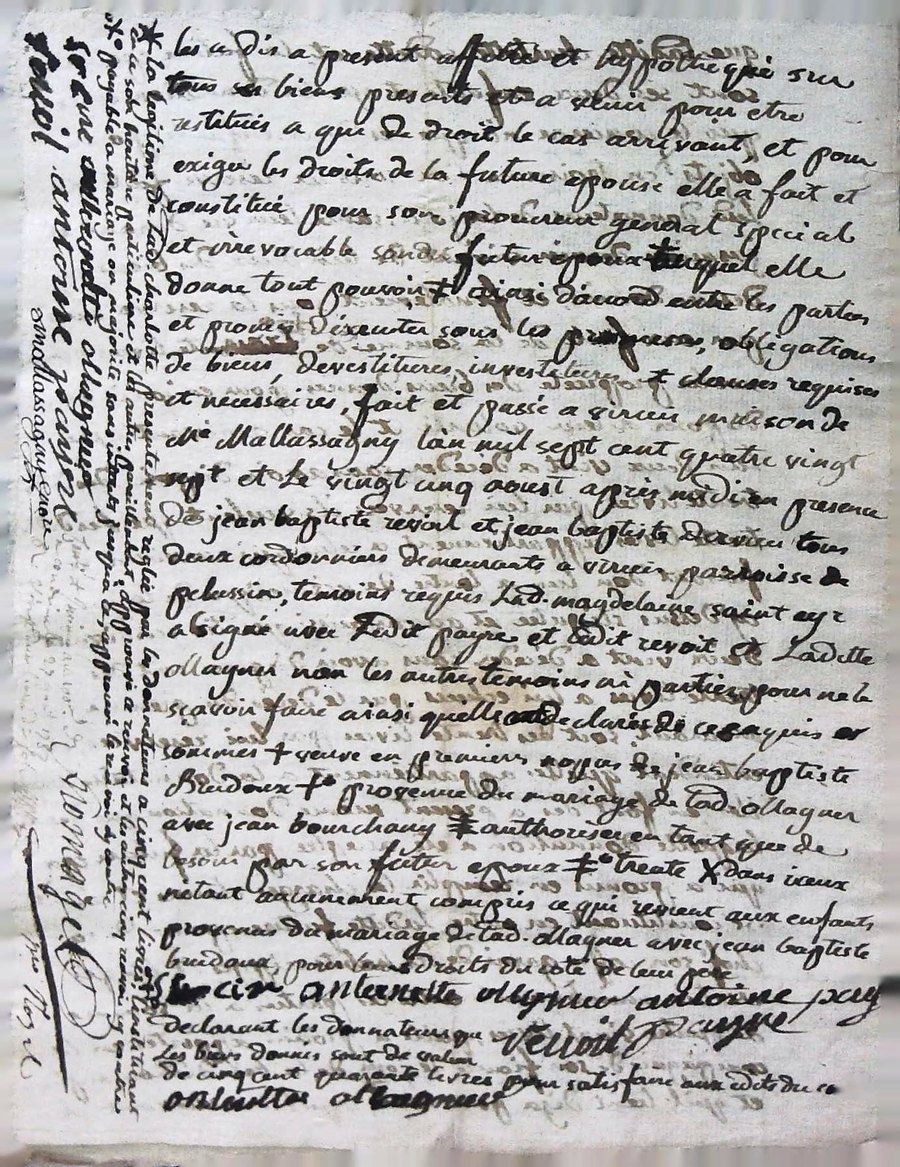 les a dis a present affecté et hypothequé sur
tous ses biens presents et a venir pour etre
restitués a qui de droit le cas arrivant, et pour
exiger les droits de la future epouse elle a fait et
constitué pour son procureur general special
et irrevocable sondit futur epoux auquel elle
donne tout pouvoir, ainsi d'accord entre les parties
et promis d'executer sous les promesses, obligations
de biens, devestitures, investitures, + clauses requises
et necessaires, fait et passé a virieu maison de
Me Mallassagny l'an mil sept cent quatre vingt
sept et Le vingt cinq aoust après midi en presence
de jean baptiste revoit et jean baptiste dervieu tous
deux cordonniers demeurants a virieu parroisse de
pelussin, temoins requis Lad. magdelaine saint cyr
a signé avec Ledit payre et ledit revoit et Ladette
Magner non les autres temoins ni parties pour ne le
scavoir faire ainsi quelles ont declarés de ce enquis et
sommés + veuve en premiers noces de jean baptiste
Burdoux +° provenue du mariage de lad. Magner
avec jean bourchany + authorisée en tant que de
besoin par son futur epoux +° trente X dans iceux
netant aucunement compris ce qui revient aux enfants
provenus du mariage de lad. Magner avec jean baptiste
burdoux, pour leurs droits du coté de leur pere
St cir anternette Magner antoine payre
declarant les donnateurs que revoit Payre
Les biens donnés sont de valeur
de cinq cent quarante livres pour satisfaire aux edits du
Magnier
* La legitime de Lad. charlotte presentement reglée par les donnateurs a cinq cent livres, l'instituant
en ce son heritiere particuliere et les autres
payable a mariage ou majorité sans interets jusqu'a la, approuvé la
St cire Magner
revoit antoine payre
Mallassagny